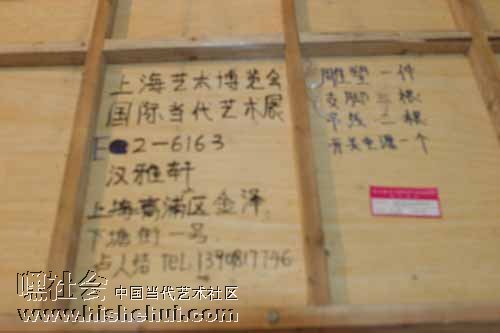 上海艺术博览会
国际当代艺术展
2-6163
汉雅轩
上海青浦区金泽
下塘街一号
TEL
雕塑一件
支脚三根
吊线二根
开关电源一个
嘿社会 中国当代艺术社区
www.hishehui.com